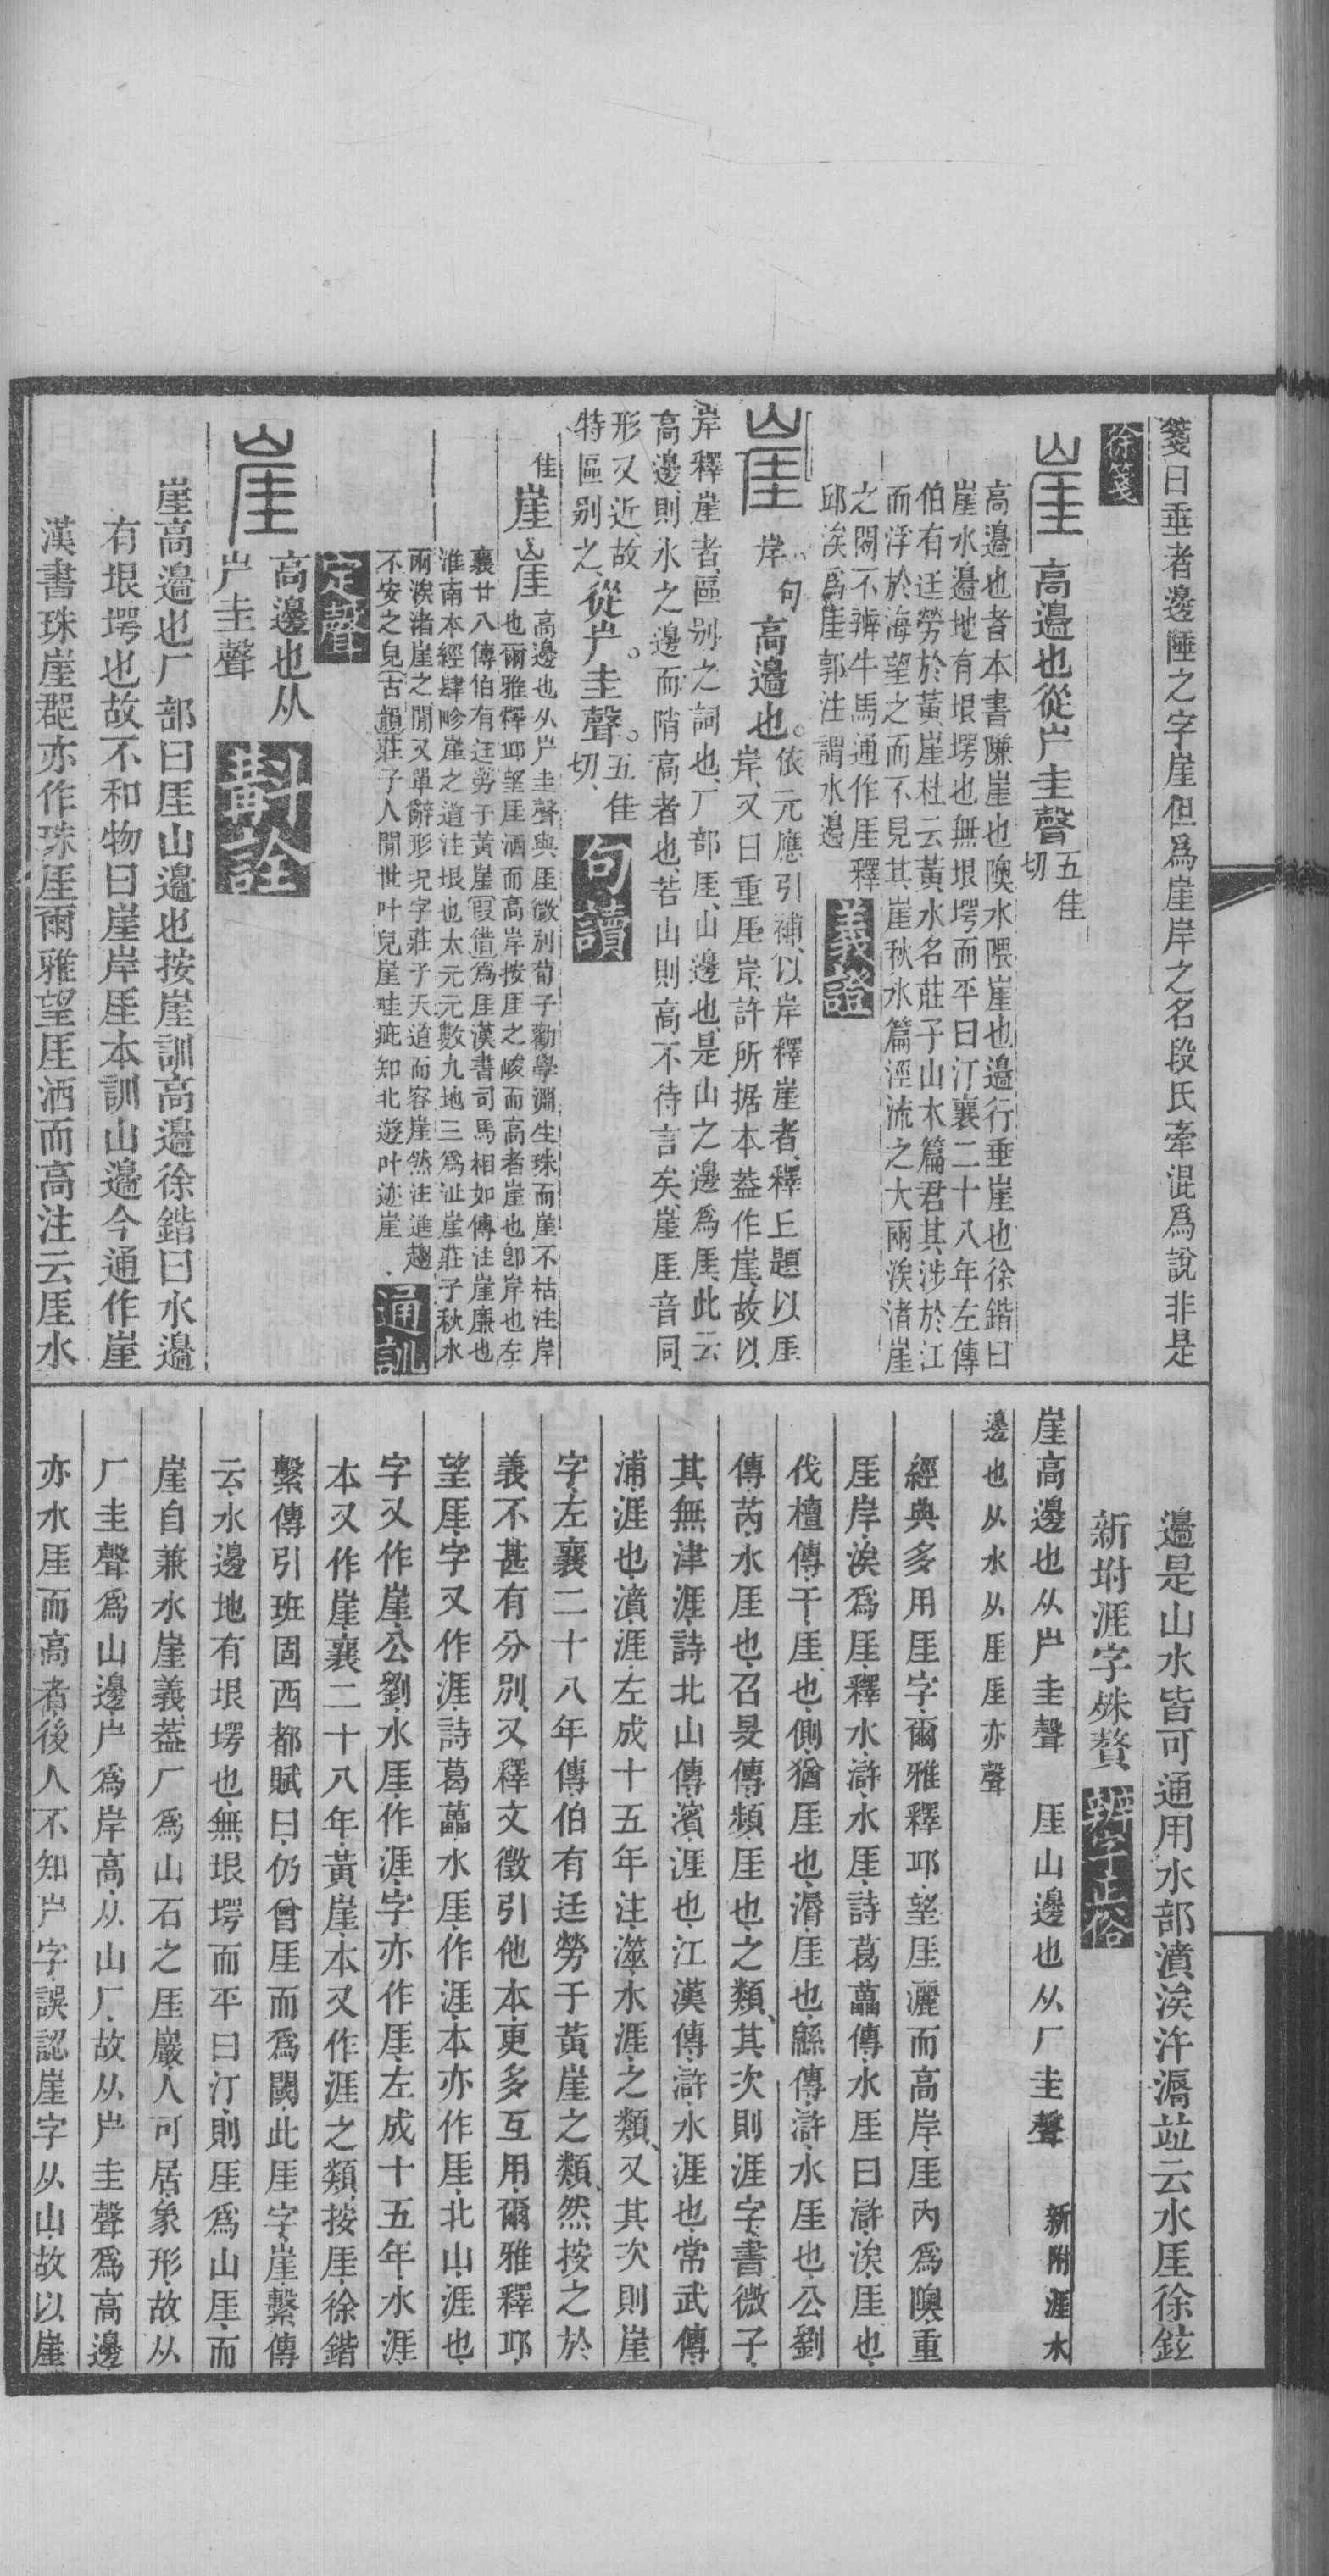 箋曰垂者邊陲之字崖但爲崖岸之名段氏牽混爲說非是
徐箋
崖 高邉也從屵圭聲五佳切
高邉也者本書隒崖也隩水隈崖也邉行垂崖也徐鍇曰
崖水邉地有垠堮也無垠堮而平曰汀襄二十八年左傳
伯有迋勞於黃崖杜云黃水名莊子山木篇君其涉於江
而浮於海望之而不見其崖秋水篇涇流之大兩涘渚崖
之閒不辨牛馬通作厓釋
邱涘爲厓郭注謂水邉
義證
崖 岸句高邉也。依元應引補以岸釋崖者釋丘題以厓
岸又曰重厓岸許所据本葢作崖故以
岸釋崖者區别之詞也厂部厓山邊也是山之邊爲厓此云
高邊則水之邊而陗高者也若山則高不待言矣崖厓音同
形又近故
特區别之從屵。圭聲。五佳切
句讀
佳崖崖高邊也从屵圭聲與厓微別荀子勸學淵生珠而崖不枯注岸
也爾雅釋邱望厓洒而高岸按厓之峻而高者崖也卽岸也左
襄廿八傳伯有迋勞于黃崖叚借爲厓漢書司馬相如傳注崖廉也
淮南本經肆畛崖之道注垠也太元元數九地三爲沚崖莊子秋水
兩涘渚崖之閒又單辭形况字莊子天道而容崖然注進趨
不安之皃古韻莊子人閒世叶兒崖哇疵知北遊叶迹崖
定聲
通訓
崖 高邉也从
屵圭聲
斠詮
崖高邉也厂部曰厓山邉也按崖訓高邉徐鍇曰水邉
有垠堮也故不和物曰崖岸厓本訓山邉今通作崖
漢書珠崖郡亦作珠厓爾雅望厓洒而高注云厓水
邉是山水皆可通用水部濆涘汻漘竝云水厓徐鉉
新坿涯字殊贅
辨字正俗
崖高邊也从屵圭聲 厓山邊也从厂圭聲 新附涯水
邊也从水从厓厓亦聲
經典多用厓字爾雅釋邱望厓灑而高岸厓內爲隩重
厓岸涘爲厓釋水滸水厓詩葛藟傳水厓曰滸涘厓也
伐檀傳干厓也側猶厓也漘厓也緜傳滸水厓也公劉
傳芮水厓也召旻傳頻厓也之類其次則涯字書微子
其無津涯詩北山傳濱涯也江漢傳滸水涯也常武傳
浦涯也濆涯左成十五年注澨水涯之類又其次則崖
字左襄二十八年傳伯有迋勞于黃崖之類然按之於
義不甚有分別又釋文徵引他本更多互用爾雅釋邱
望厓字又作涯詩葛藟水厓作涯本亦作厓北山涯也
字又作崖公劉水厓作涯字亦作厓左成十五年水涯
本又作崖襄二十八年黃崖本又作涯之類按厓徐鍇
繫傳引班固西都賦曰仍曾厓而爲閾此厓字崖繫傳
云水邊地有垠堮也無垠堮而平曰汀則厓爲山厓而
崖自兼水崖義葢厂爲山石之厓巖人可居象形故从
厂圭聲爲山邊屵爲岸高从山厂故从屵圭聲爲高邊
亦水厓而高者後人不知屵字誤認崖字从山故以崖